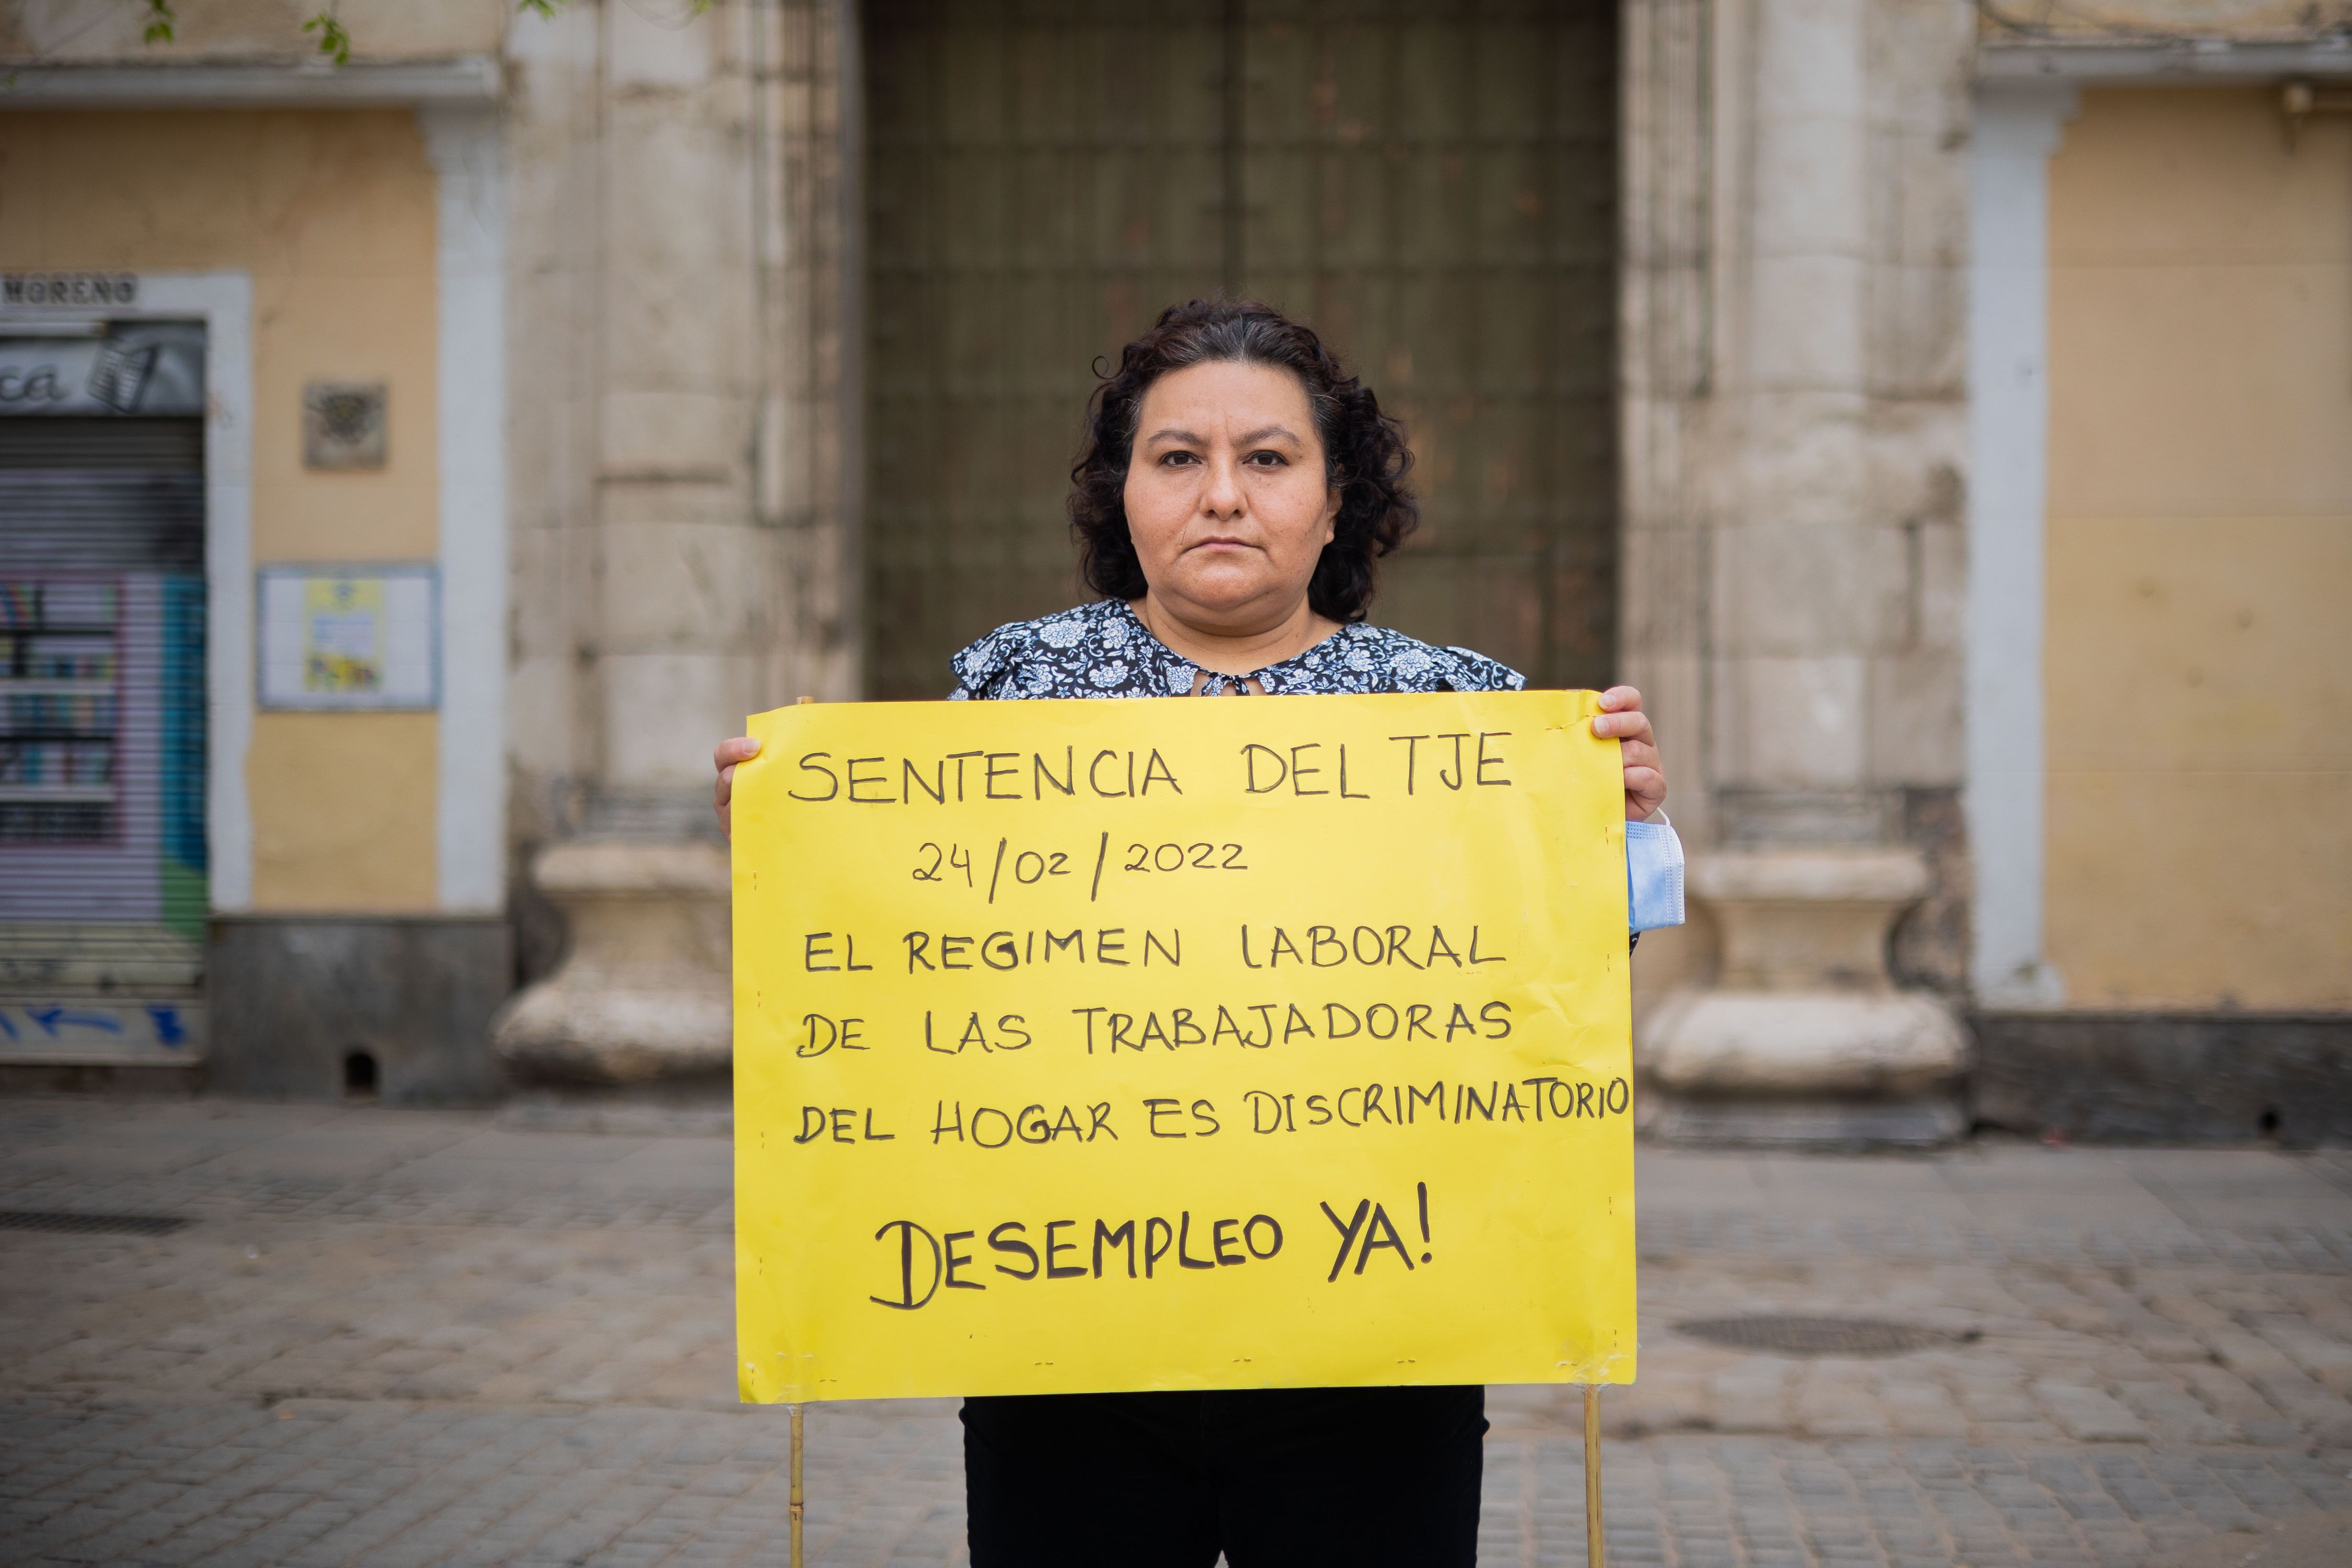 MORENO
ca
SENTENCIA DEL TJE
24/02/2022
EL REGIMEN LABORAL
DE LAS TRABAJADORAS
DEL HOGAR ES DISCRIMINATORIO
DESEMPLEO YA!